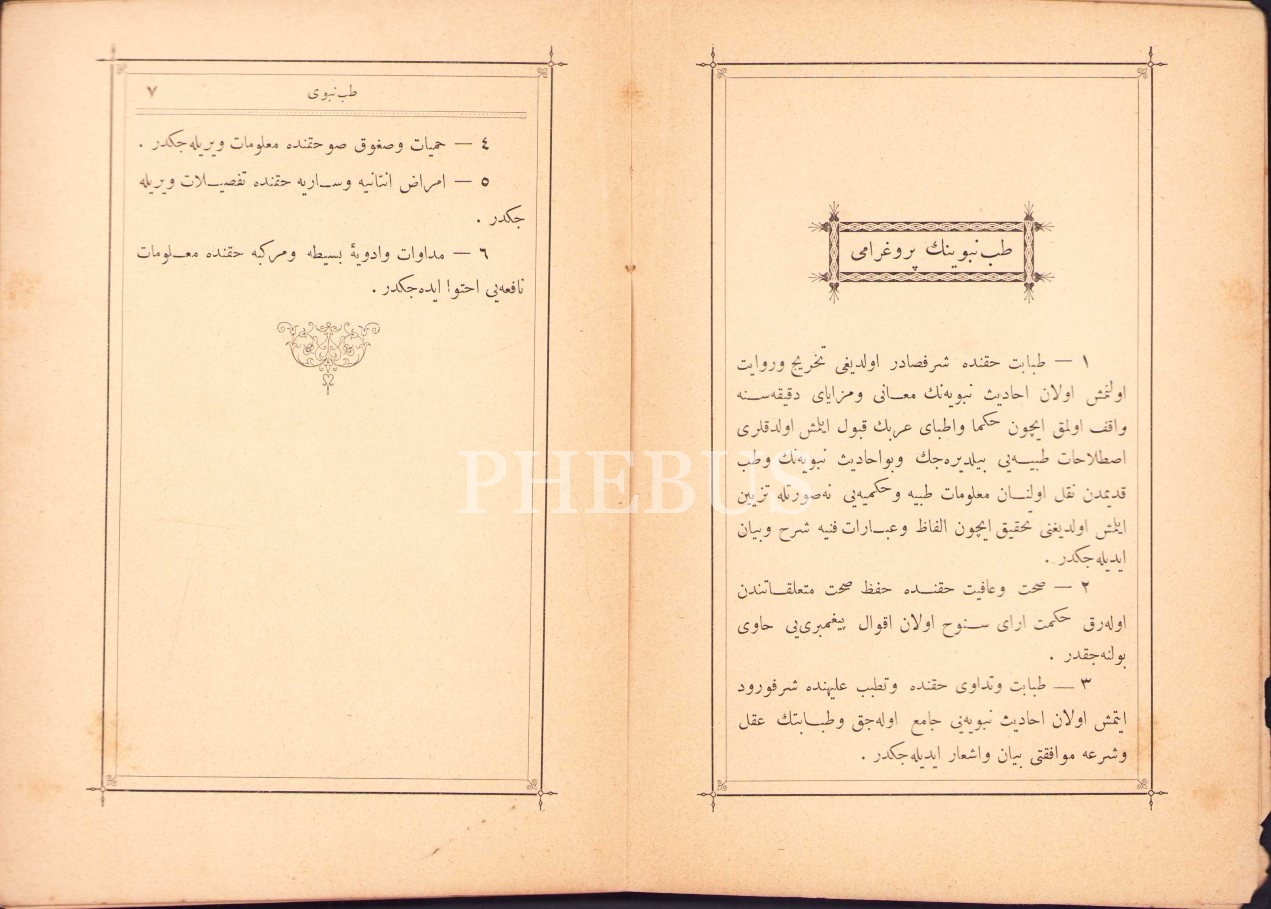 طب نبوینك پروغرامی
١ — طبابت حقنده شرفصادر اولدیغی تخریج وروایت
اولنمش اولان احادیث نبویه‌نك معانی ومزایای دقیقه‌سنه
واقف اولمق ایچون حکما واطبای عربك قبول ایلمش اولدقلری
اصطلاحات طبیه‌یی بیلدیره‌جك وبواحادیث نبویه‌نك وطب
قدیمدن نقل اولنان معلومات طبیه وحکمیه‌یی نه‌صورتله تزیین
ایلمش اولدیغنی تحقیق ایچون الفاظ وعبارات فنیه شرح وبیان
ایدیله‌جکدر .
٢ — صحت وعافیت حقنده حفظ صحت متعلقاتندن
اوله‌رق حکمت ارای سنوح اولان اقوال پیغمبری‌یی حاوی
بولنه‌جقدر .
٣ — طبابت وتداوی حقنده وتطبب علیهنده شرفورود
ایتمش اولان احادیث نبویه‌یی جامع اوله‌جق وطبابتك عقل
وشرعه موافقتی بیان واشعار ایدیله‌جکدر .
طب نبوی ٧
٤ — حمیات وصغوق صو حقنده معلومات ویریله‌جکدر .
٥ — امراض انتانیه وساریه حقنده تفصیلات ویریله
جکدر .
٦ — مداوات وادویۀ بسیطه ومرکبه حقنده معلومات
نافعه‌یی احتوا ایده‌جکدر .
PHEBUS